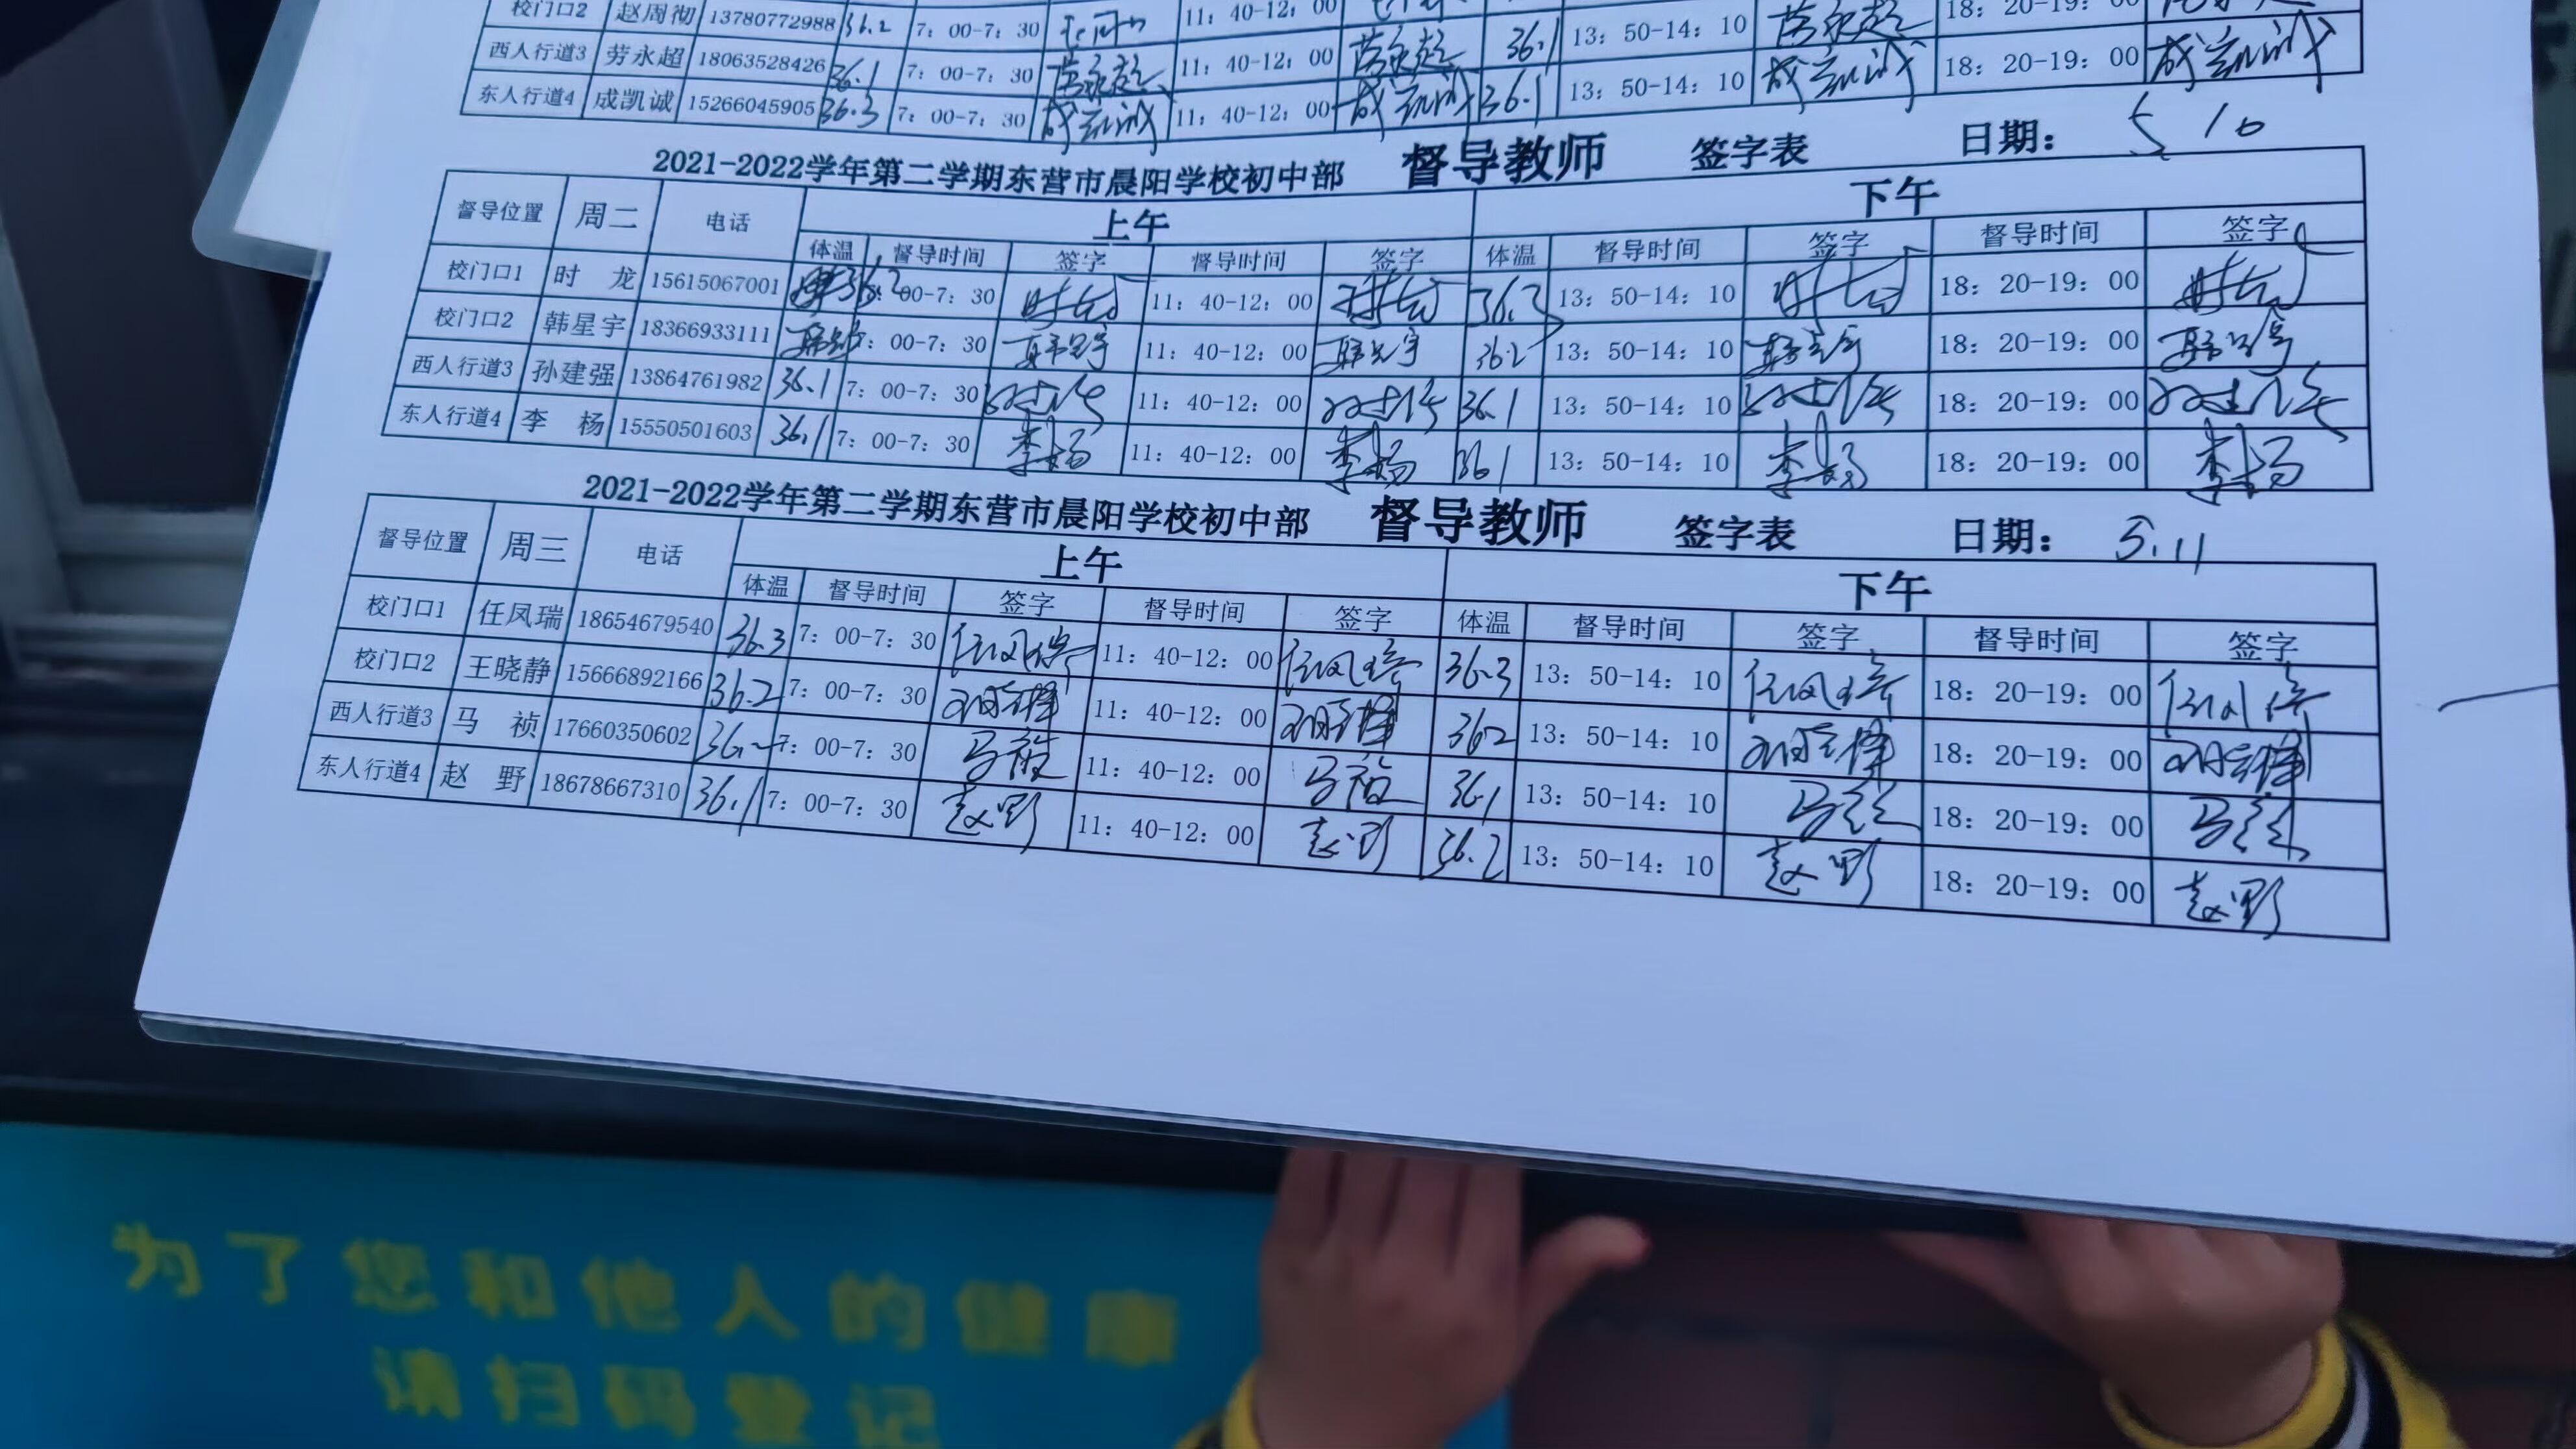 校门口2 赵周彻 13780772988 36.2 7：00-7：30 11：40-12：00 18：20-19：00
西人行道3 劳永超 18063528426 36.1 7：00-7：30 劳永超 11：40-12：00 劳永超 36.1 13：50-14：10 劳永超 18：20-19：00
东人行道4 成凯诚 15266045905 36.3 7：00-7：30 成凯诚 11：40-12：00 成凯诚 36.1 13：50-14：10 成凯诚 18：20-19：00 成凯诚
2021-2022学年第二学期东营市晨阳学校初中部 督导教师 签字表 日期： 5 10
督导位置 周二 电话 上午 下午
体温 督导时间 签字 督导时间 签字 体温 督导时间 签字 督导时间 签字
校门口1 时 龙 15615067001 36.2 00-7：30 时龙 11：40-12：00 时龙 36.3 13：50-14：10 时龙 18：20-19：00 时龙
校门口2 韩星宇 18366933111 ：00-7：30 韩星宇 11：40-12：00 韩星宇 36.2 13：50-14：10 韩星宇 18：20-19：00 韩星宇
西人行道3 孙建强 13864761982 36.1 7：00-7：30 孙建强 11：40-12：00 孙建强 36.1 13：50-14：10 孙建强 18：20-19：00 孙建强
东人行道4 李 杨 15550501603 36.1 7：00-7：30 李杨 11：40-12：00 李杨 36.1 13：50-14：10 李杨 18：20-19：00 李杨
2021-2022学年第二学期东营市晨阳学校初中部 督导教师 签字表 日期： 5.11
督导位置 周三 电话 上午 下午
体温 督导时间 签字 督导时间 签字 体温 督导时间 签字 督导时间 签字
校门口1 任凤瑞 18654679540 36.3 7：00-7：30 任凤瑞 11：40-12：00 任凤瑞 36.3 13：50-14：10 任凤瑞 18：20-19：00 任凤瑞
校门口2 王晓静 15666892166 36.2 7：00-7：30 11：40-12：00 36.2 13：50-14：10 18：20-19：00
西人行道3 马 祯 17660350602 7：00-7：30 马祯 11：40-12：00 马祯 36.1 13：50-14：10 马祯 18：20-19：00 马祯
东人行道4 赵 野 18678667310 36.1 7：00-7：30 赵野 11：40-12：00 赵野 36.2 13：50-14：10 赵野 18：20-19：00 赵野
为了您和他人的健康
请扫码登记